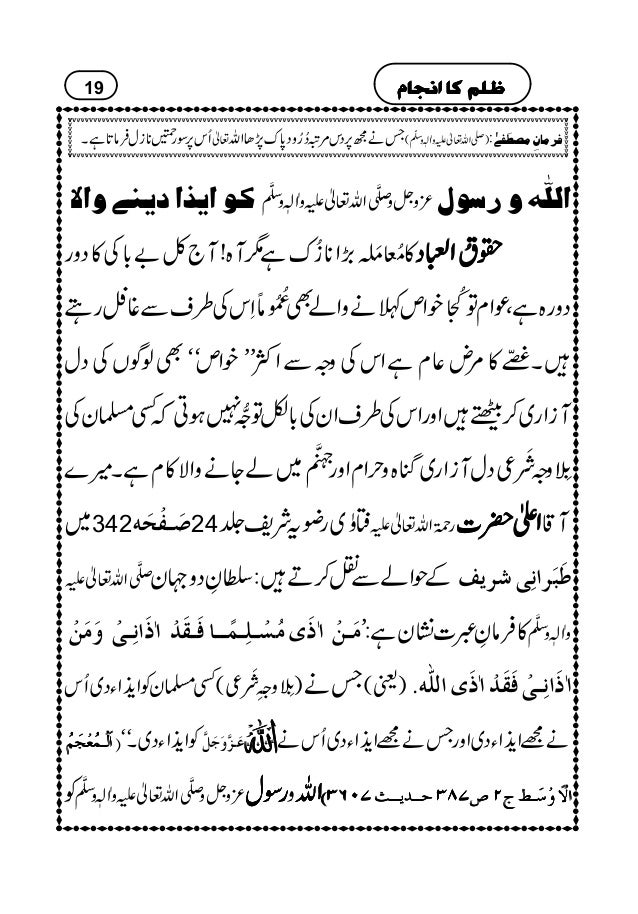 19
ظلم کا انجام
فرمانِ مصطَفٰے: (صلی اللہ تعالیٰ علیہ واٰلہٖ وسلّم) جس نے مجھ پر دس مرتبہ دُرُود پاک پڑھا اللہ تعالیٰ اُس پر سو رحمتیں نازل فرماتا ہے۔
اللّٰہ و رسول عزوجل وصلَّی اللہ تعالیٰ علیہ واٰلہٖ وسلَّم کو ایذا دینے والا
حقوقُ العباد کا مُعامَلہ بڑا نازُک ہے مگر آہ! آج کل بے باکی کا دور
دورہ ہے، عوام تو کُجا خواص کہلانے والے بھی عُمُوماً اِس کی طرف سے غافل رہتے
ہیں۔ غصّے کا مرض عام ہے اس کی وجہ سے اکثر ’’خواص‘‘ بھی لوگوں کی دل
آزاری کر بیٹھتے ہیں اور اس کی طرف ان کی بالکل توجُّہ نہیں ہوتی کہ کسی مسلمان کی
بِلا وجہِ شَرعی دل آزاری گناہ و حرام اور جہنَّم میں لے جانے والا کام ہے۔ میرے
آقا اعلیٰ حضرت رحمۃ اللہ تعالیٰ علیہ فتاوٰی رضویہ شریف جلد 24 صَفْحَہ 342 میں
طَبَرانِی شریف کے حوالے سے نقل کرتے ہیں: سلطانِ دو جہان صلَّی اللہ تعالیٰ علیہ
واٰلہٖ وسلَّم کا فرمانِ عبرت نشان ہے: ’مَنْ اٰذٰی مُسْلِمًا فَقَدْ اٰذَانِیْ وَمَنْ
اٰذَانِیْ فَقَدْ اٰذَی اللّٰہ. (یعنی) جس نے (بِلا وجہِ شَرعی) کسی مسلمان کو ایذاء دی اُس
نے مجھے ایذاء دی اور جس نے مجھے ایذاء دی اُس نے اللّٰہ عَزَّوَجَلَّ کو ایذاء دی۔‘‘ (اَلْمُعْجَمُ
الْاَوْسَط ج۲ ص۳۸۷ حدیث ۳۶۰۷) اللّٰہ و رسول عزوجل وصلَّی اللہ تعالیٰ علیہ واٰلہٖ وسلَّم کو